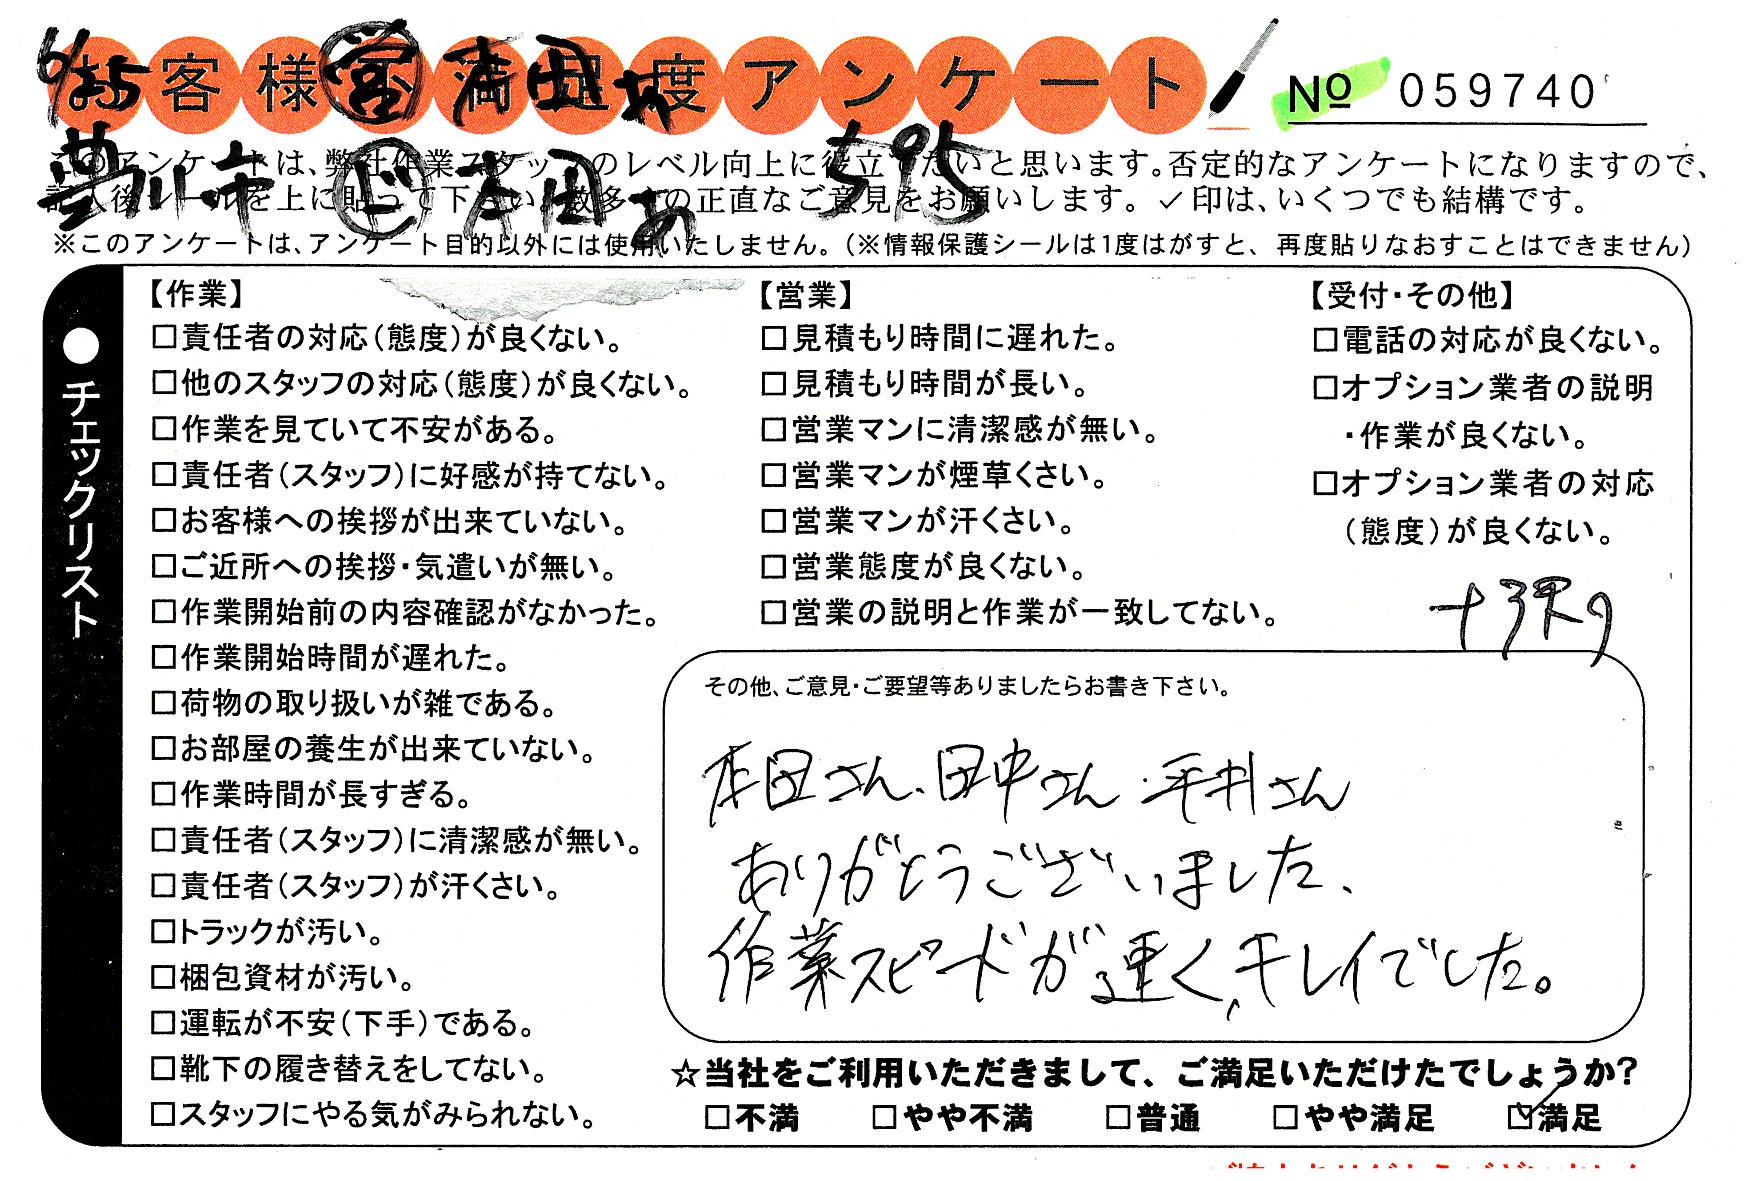 お客様満足度アンケート
№ 059740
このアンケートは、弊社作業スタッフのレベル向上に役立てたいと思います。否定的なアンケートになりますので、
記入後シールを上に貼って下さい。数多くの正直なご意見をお願いします。✓印は、いくつでも結構です。
※このアンケートは、アンケート目的以外には使用いたしません。(※情報保護シールは1度はがすと、再度貼りなおすことはできません)
営
豊川市 本田 595
●チェックリスト
【作業】
□責任者の対応(態度)が良くない。
□他のスタッフの対応(態度)が良くない。
□作業を見ていて不安がある。
□責任者(スタッフ)に好感が持てない。
□お客様への挨拶が出来ていない。
□ご近所への挨拶・気遣いが無い。
□作業開始前の内容確認がなかった。
□作業開始時間が遅れた。
□荷物の取り扱いが雑である。
□お部屋の養生が出来ていない。
□作業時間が長すぎる。
□責任者(スタッフ)に清潔感が無い。
□責任者(スタッフ)が汗くさい。
□トラックが汚い。
□梱包資材が汚い。
□運転が不安(下手)である。
□靴下の履き替えをしてない。
□スタッフにやる気がみられない。
【営業】
□見積もり時間に遅れた。
□見積もり時間が長い。
□営業マンに清潔感が無い。
□営業マンが煙草くさい。
□営業マンが汗くさい。
□営業態度が良くない。
□営業の説明と作業が一致してない。
【受付・その他】
□電話の対応が良くない。
□オプション業者の説明
・作業が良くない。
□オプション業者の対応
(態度)が良くない。
その他、ご意見・ご要望等ありましたらお書き下さい。
本田さん、田中さん、平井さん
ありがとうございました、
作業スピードが速く、キレイでした。
☆当社をご利用いただきまして、ご満足いただけたでしょうか?
□不満 □やや不満 □普通 □やや満足 ☑満足